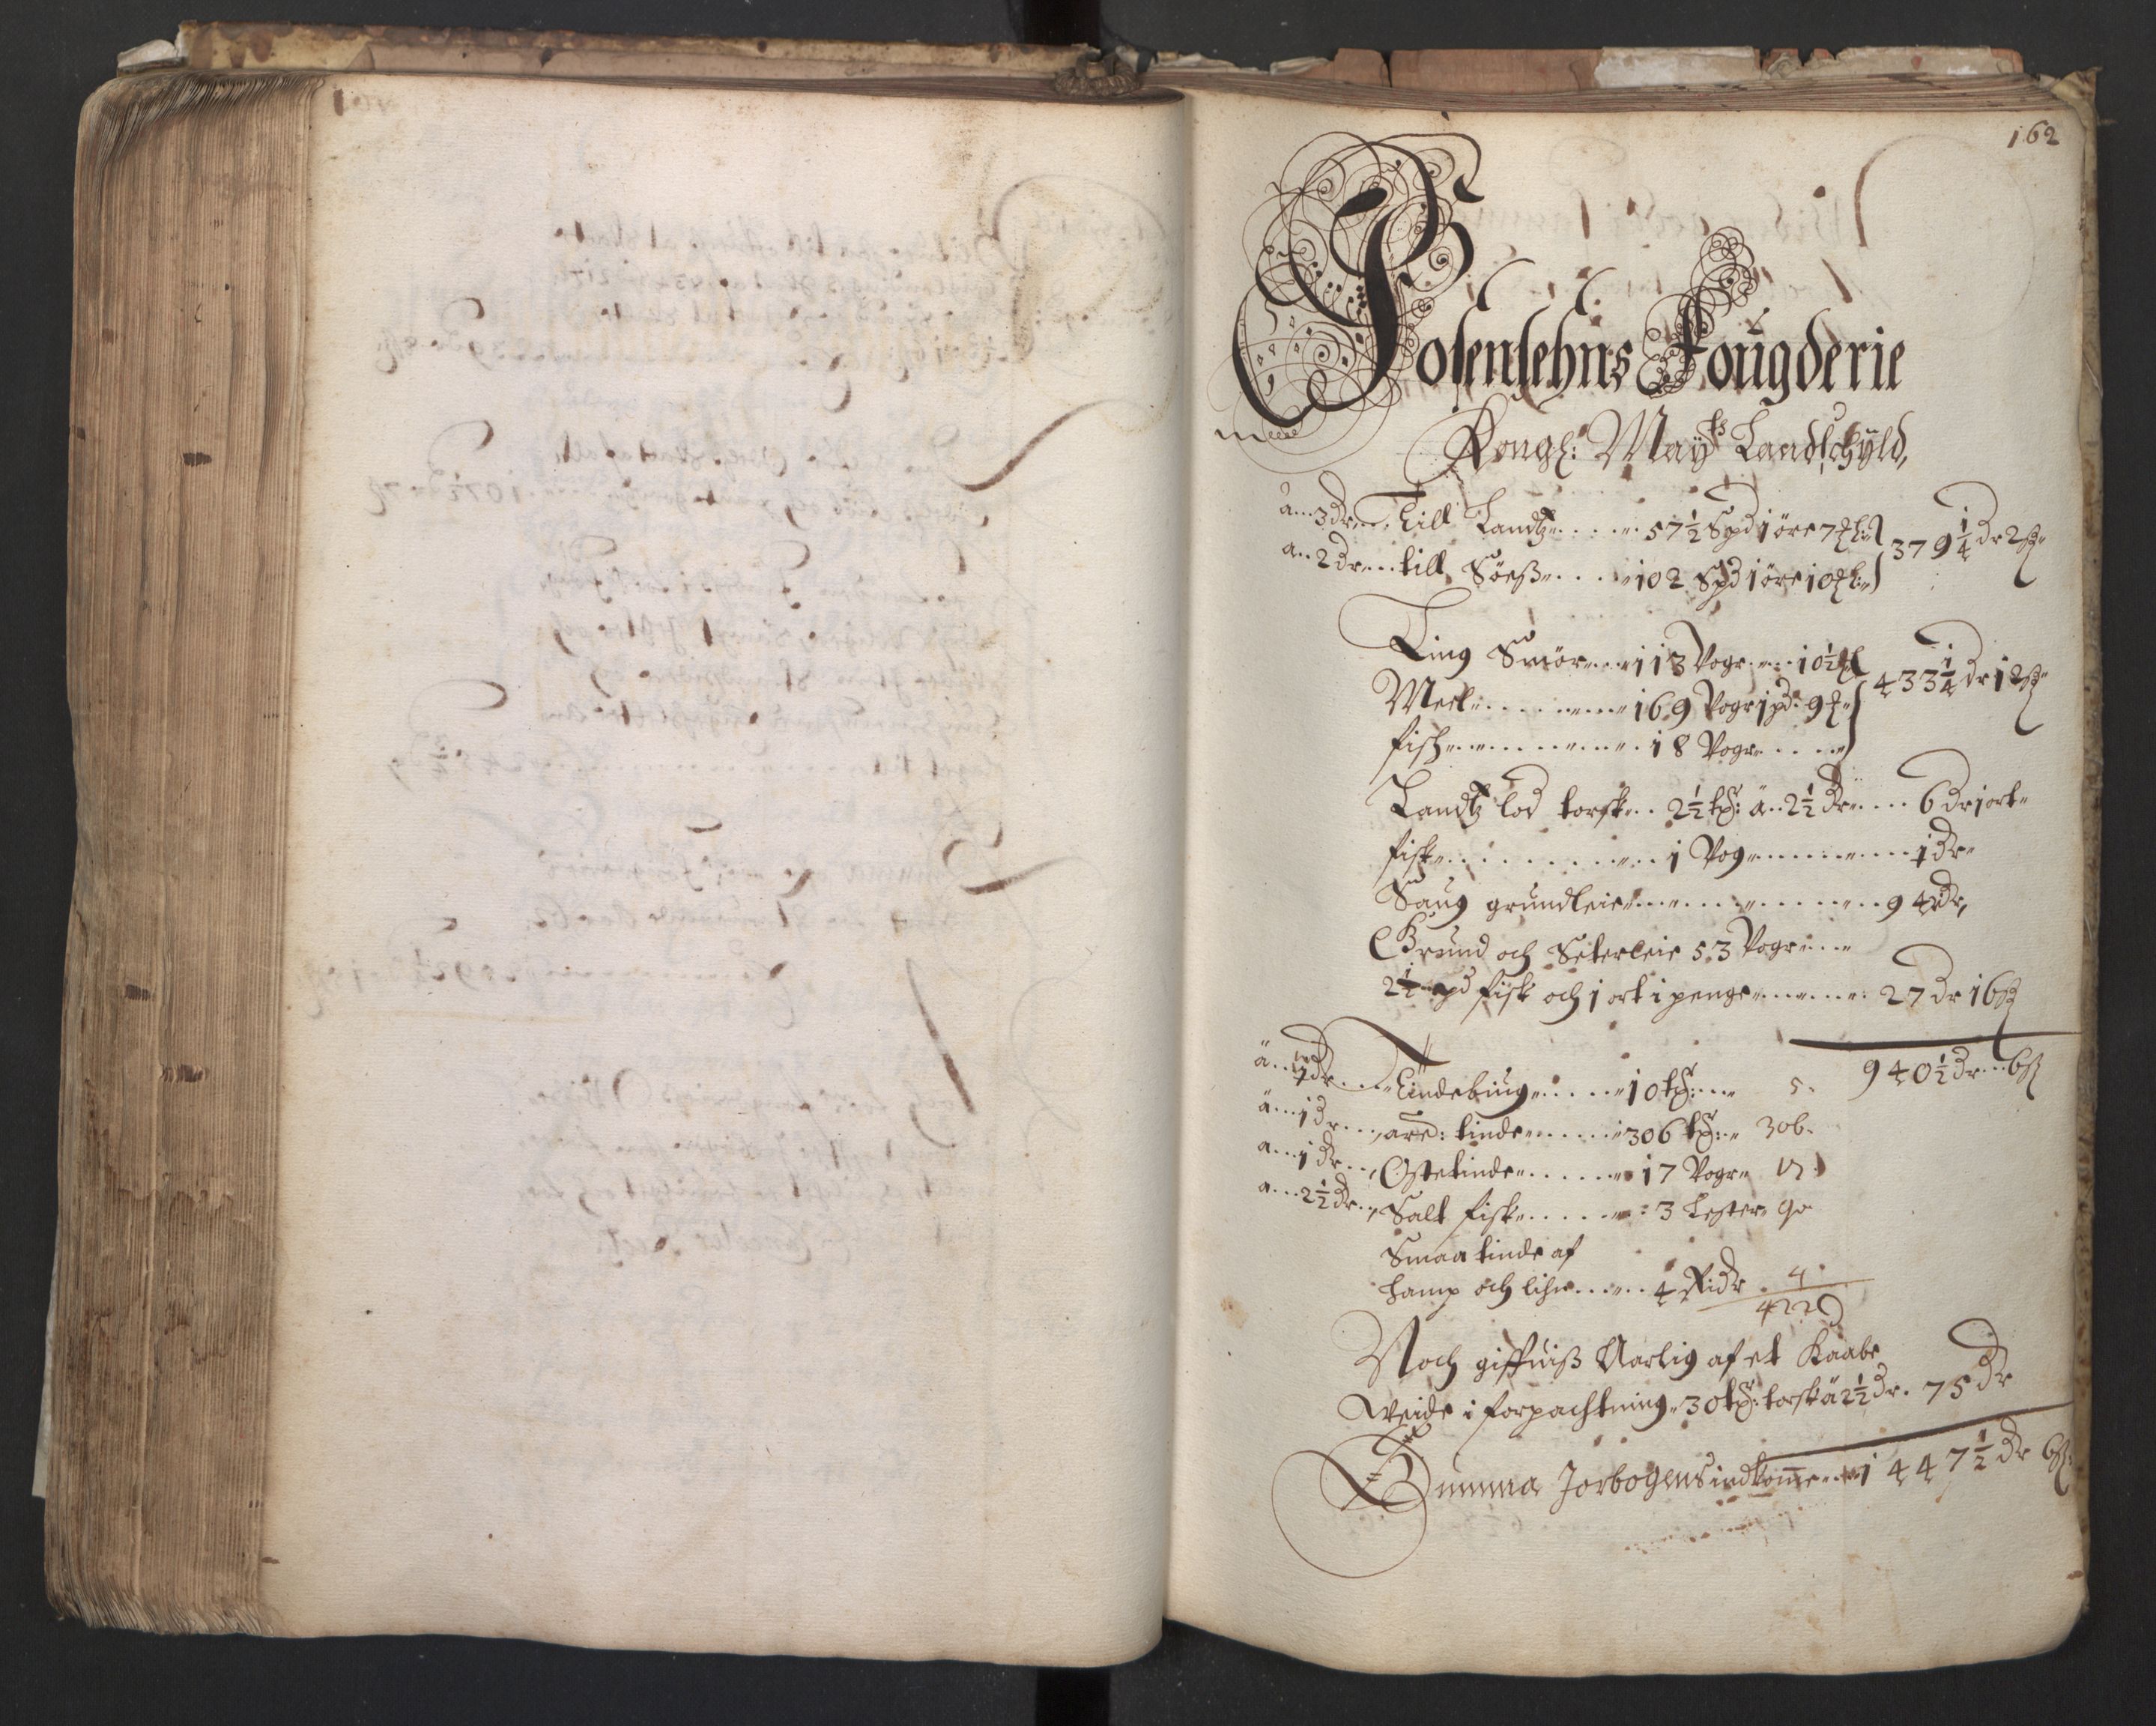 162
Fosenlehns Fougderie
Kongl: Mayts Landschyld,
a...3 dr... Till Landtz......57½ Spd 1 øre 7 ℔l
379¼ dr 2 ß
a..2 dr...till Søes......102 Spd 1 øre 10 ℔l
Ting Smør....113 Vogr....10½ ℔
433¼ dr 12 ß
Meel..........169 Vogr 1 pd. 9 ℔
fisk..............18 Vogr.....
Landtz lod torsk... 2½ tß: a..2½ dr.... 6 dr 1 ort
fisk.............1 Vog...........1 dr
Saug grundleie..............94 dr,
Grund och Seterleie 53 Vogr....
2½ pd fisk och 1 ort i penge........ 27 dr 16 ß
940½ dr...6 ß
a...½ dr....Tindebiug......10 tß:... 5.
a...1 dr...,are: tinde......306 tß:.. 306.
a...1 dr..,Ostetinde.......17 Vogr 17
a...2½ dr..,Salt fisk.......3 Lester 90
Smaa tinde af
hamp och lihn......4 Ridr 4
422
Noch giffuis Aarlig af et Kaabe
Weide i forpachtning 30 tß: torsk a 2½ dr. 75 dr
Summa Jorbogens indkomme....1447½ dr 6 ß